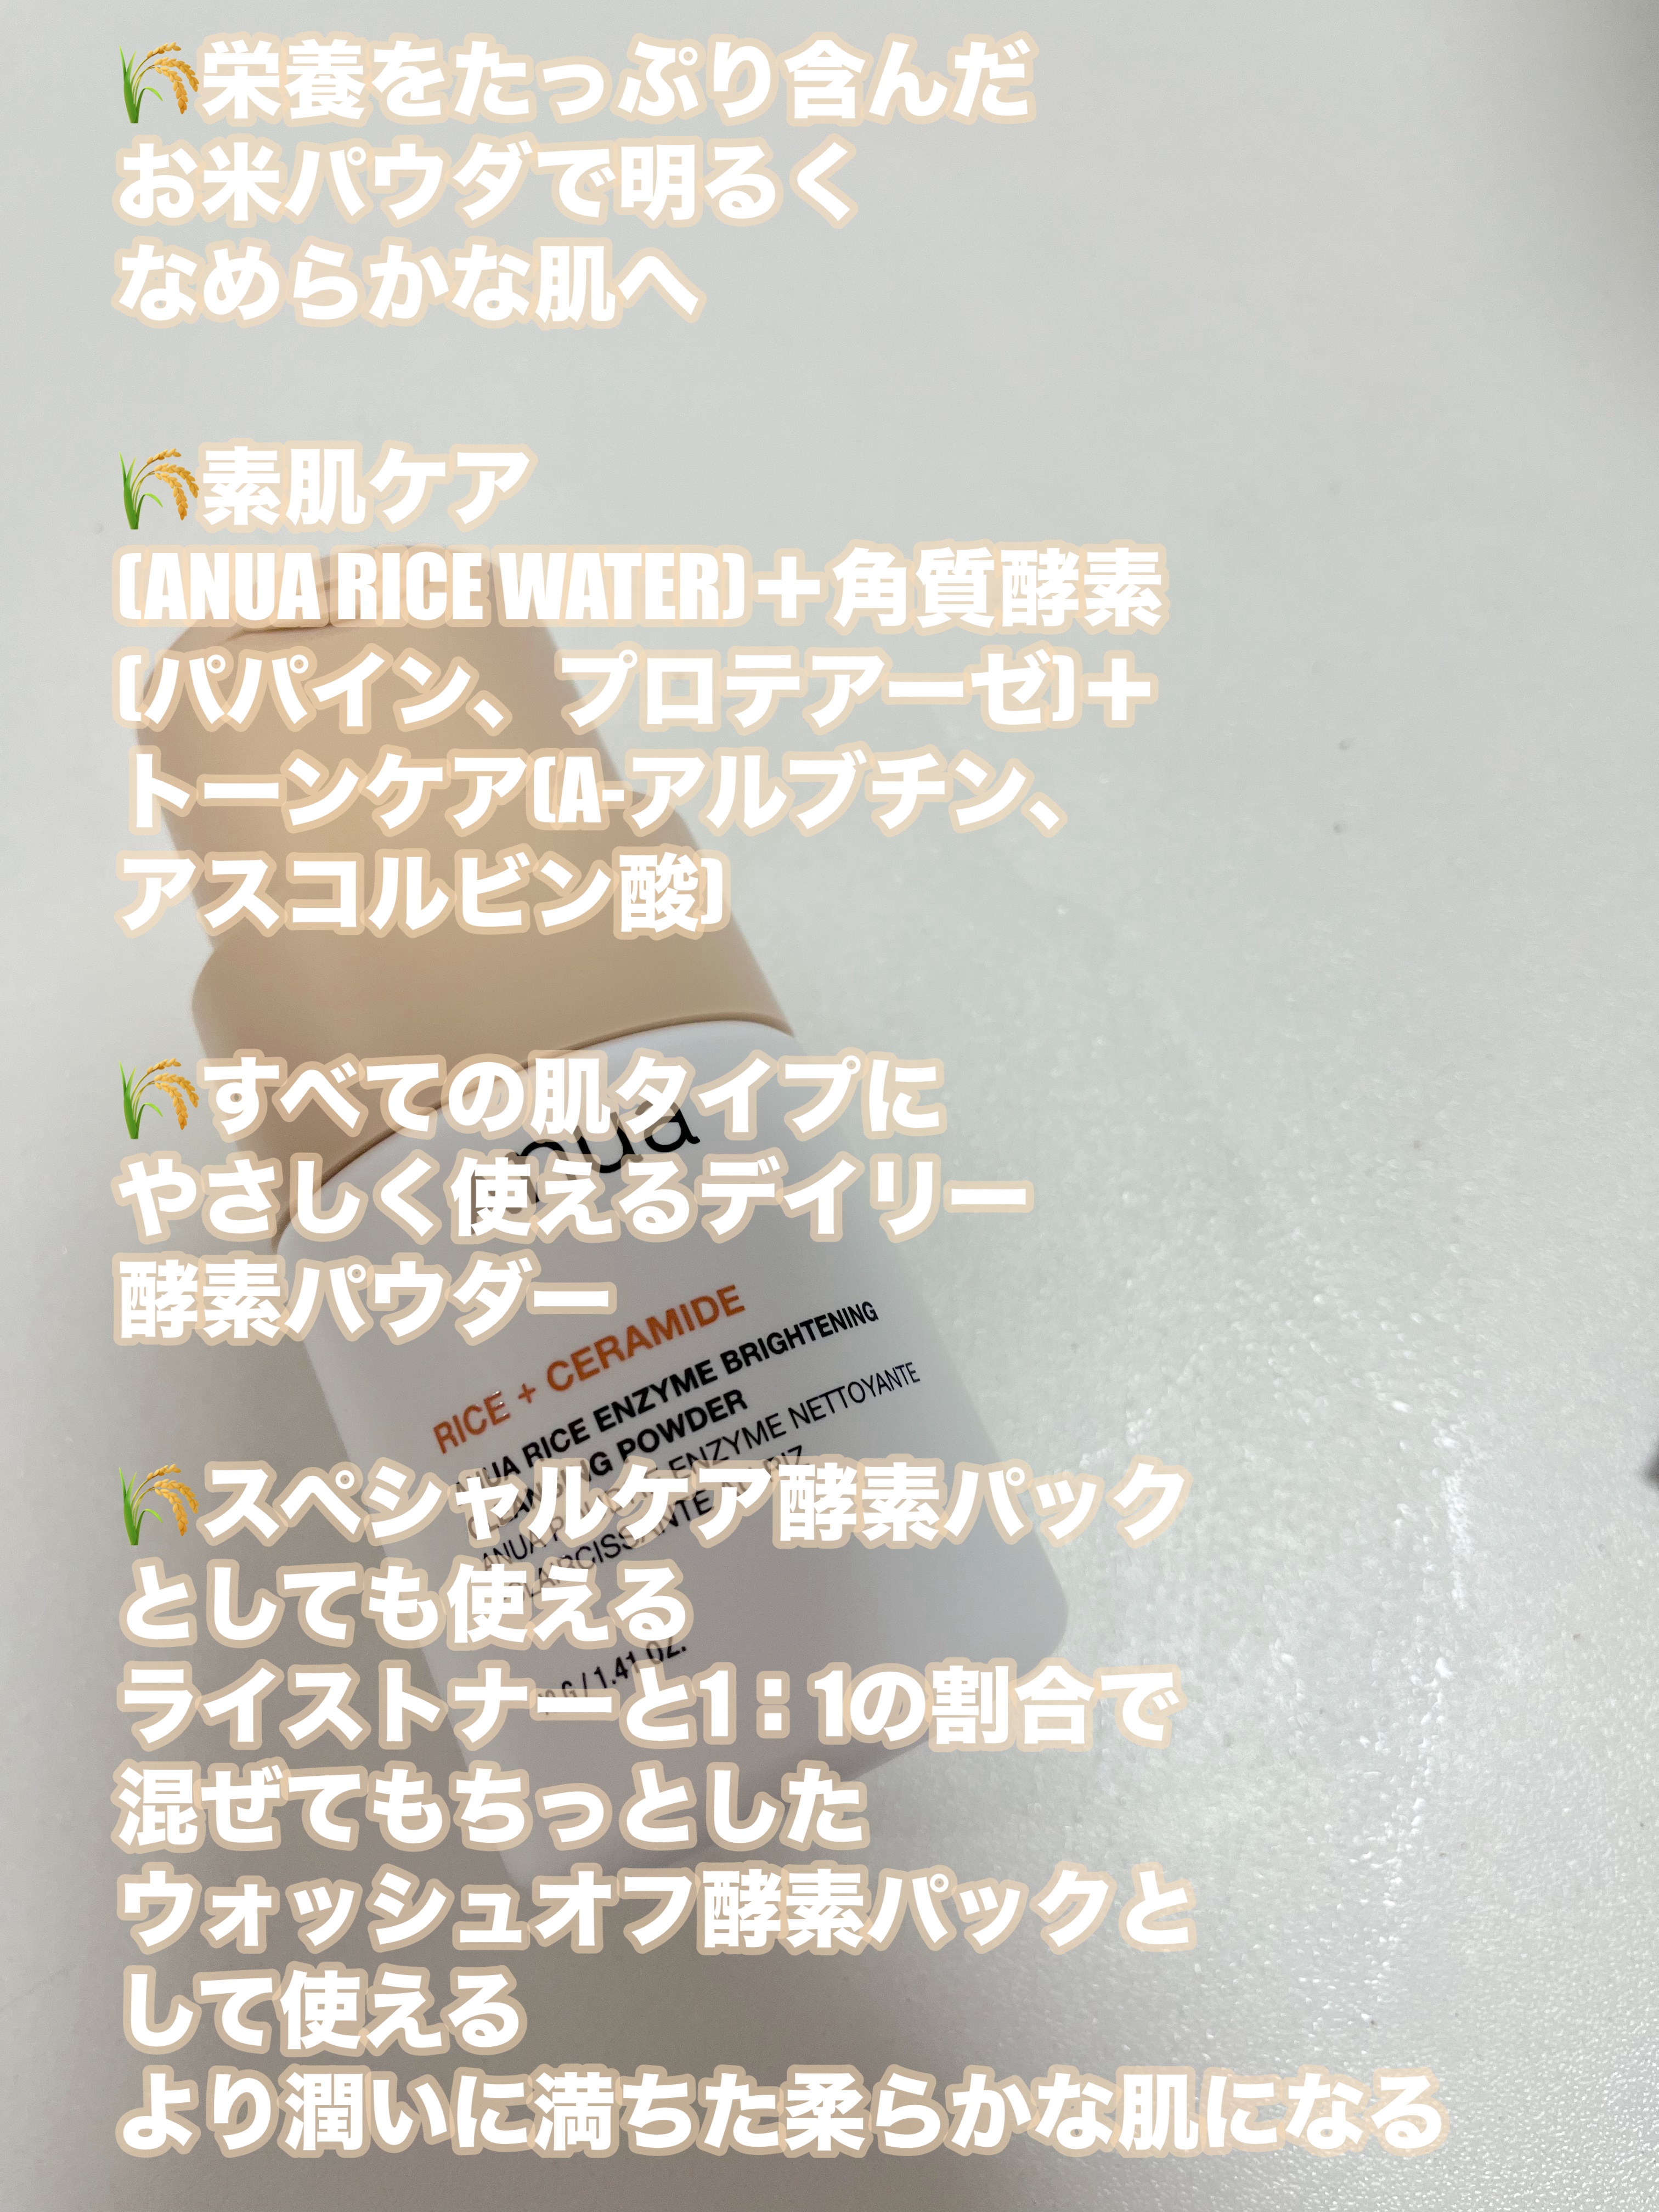 🌾栄養をたっぷり含んだ
お米パウダで明るく
なめらかな肌へ
🌾素肌ケア
(ANUA RICE WATER)＋角質酵素
(パパイン、プロテアーゼ)＋
トーンケア(A-アルブチン、
アスコルビン酸)
🌾すべての肌タイプに
やさしく使えるデイリー
酵素パウダー
🌾スペシャルケア酵素パック
としても使える
ライストナーと1：1の割合で
混ぜてもちっとした
ウォッシュオフ酵素パックと
して使える
より潤いに満ちた柔らかな肌になる
anua
RICE + CERAMIDE
ANUA RICE ENZYME BRIGHTENING
CLEANSING POWDER
ANUA ENZYME NETTOYANTE
G / 1.41 OZ.